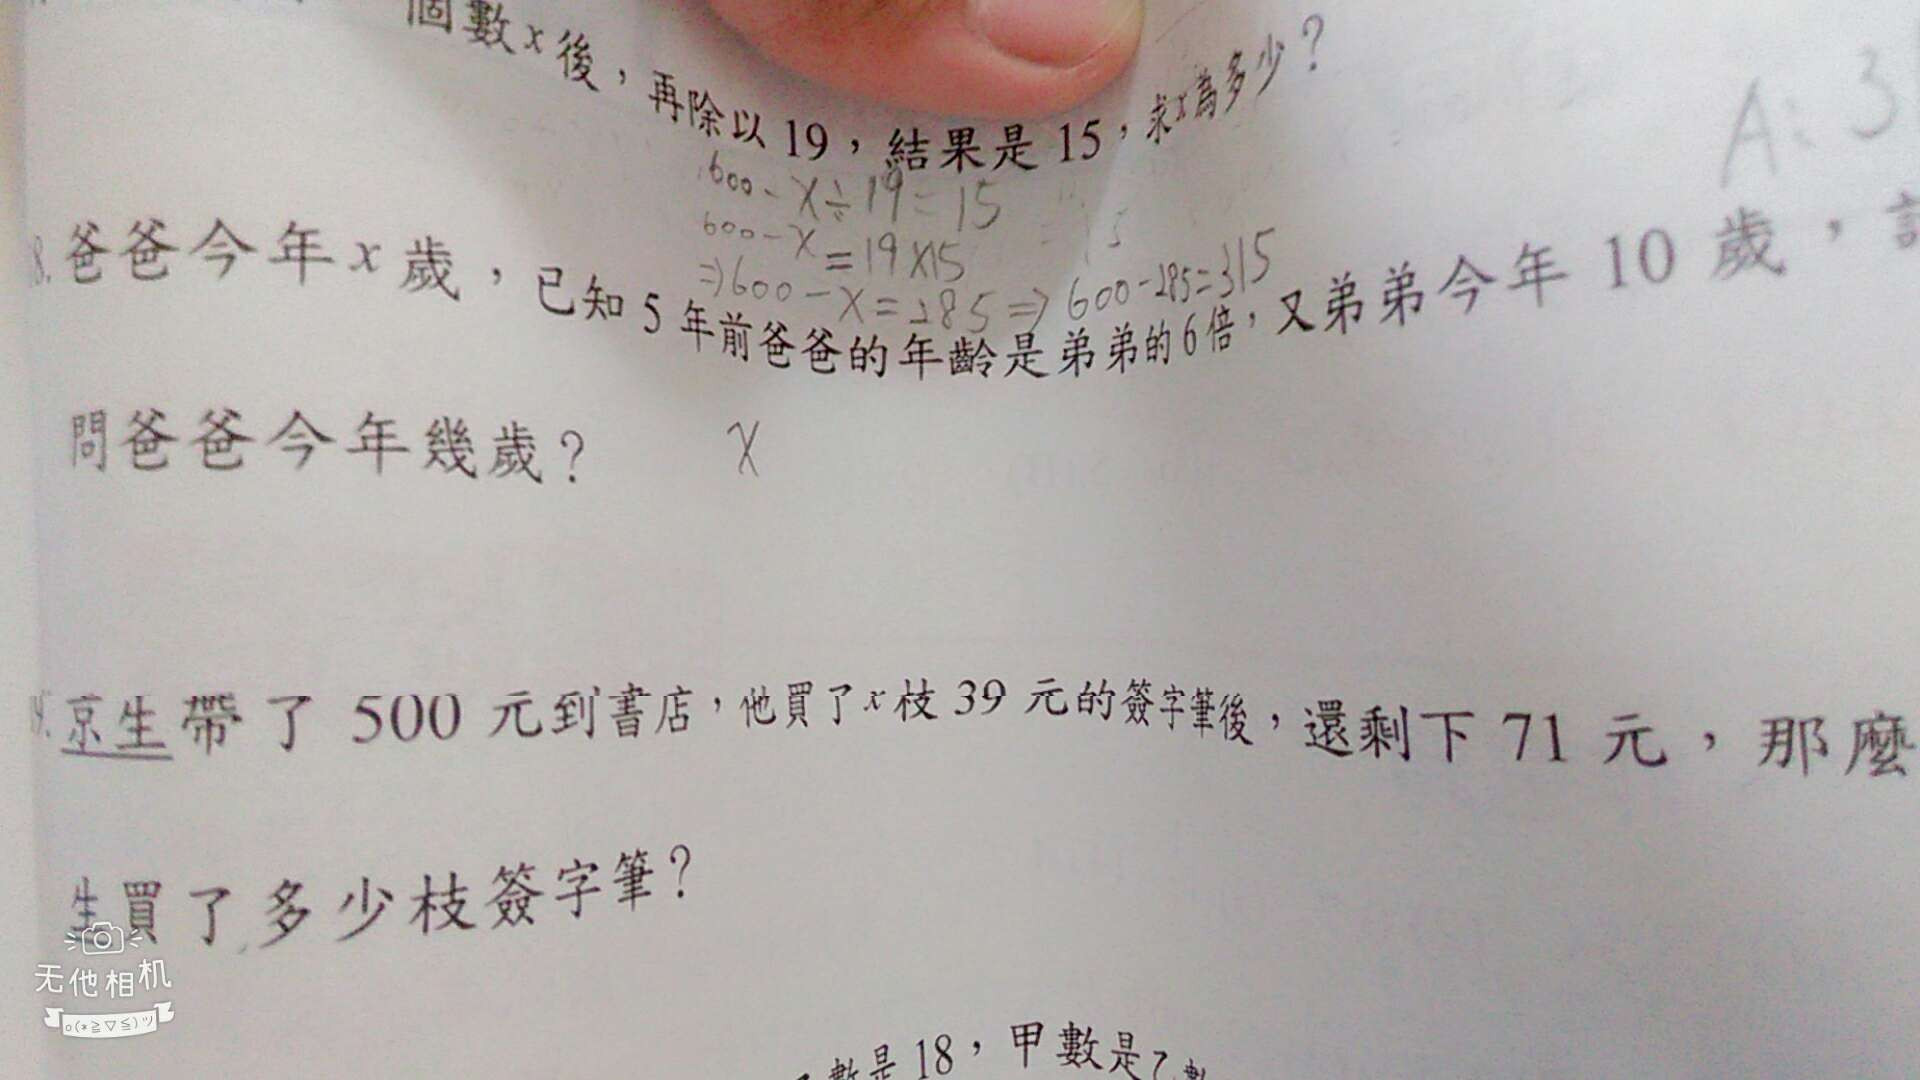 個數x後，再除以19，結果是15，求x為多少？
A: 3
600-x÷19=15
600-x=19×15
⇒600-x=285⇒600-285=315
8.爸爸今年x歲，已知5年前爸爸的年齡是弟弟的6倍，又弟弟今年10歲，
問爸爸今年幾歲？
x
京生帶了500元到書店，他買了x枝39元的簽字筆後，還剩下71元，那麼
生買了多少枝簽字筆？
无他相机
數是18，甲數是乙數